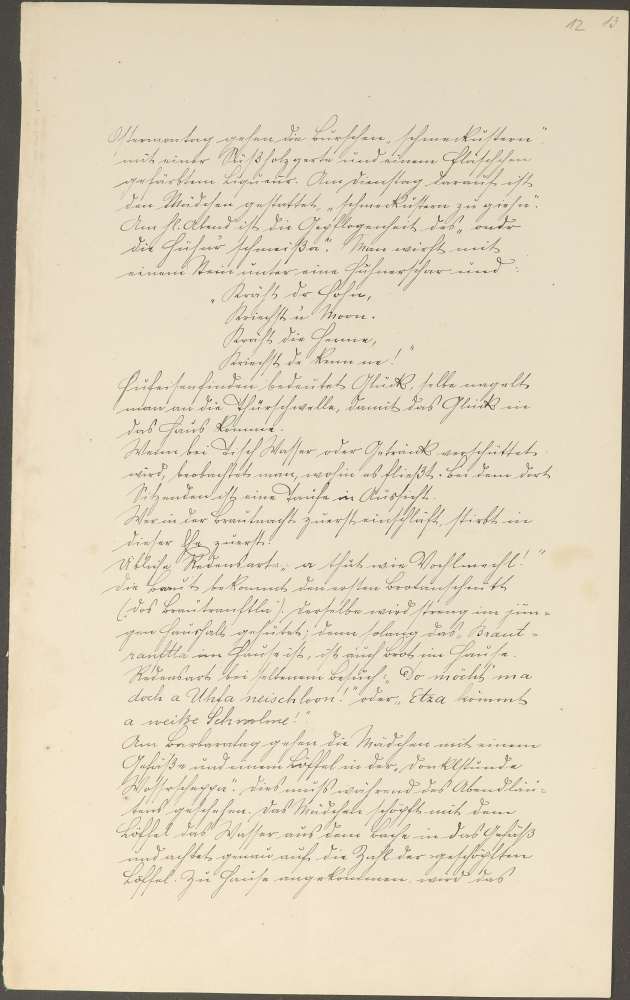 12 13
Ostermontag gehen die Burschen „schmeckustern"
mit einer Süßholzgerte und einem Fläschchen
gefärbtem Liqueur. Am Dienstag darauf ist
den Mädchen gestattet „schmeckustern zu giehn".
Am hl. Abend ist die Gepflogenheit des „ondr
die Hühnr schmeißa". Man wirft mit
einem Stein unter eine Hühnerschar und
„Kräht dr Hohn,
Kriechst u Moon.
Kräht die Henne,
Kriechst de kenn ne!"
Hufeisenfinden bedeutet Glück, selbe nagelt
man an die Thürschwelle, damit das Glück in
das Haus komme.
Wenn bei Tisch Wasser oder Getränk verschüttet
wird, beobachtet man, wohin es fließt. Bei dem dort
Sitzenden ist eine Taufe in Aussicht.
Wer in der Brautnacht zuerst einschläft, stirbt in
dieser Ehe zuerst.
Übliche Redensart: „a thut wie Vochlmachl!"
Die Braut bekommt den ersten Brotanschnitt
(:dos Brautranftla:). Derselbe wird streng im jun-
gen Haushalt gehütet; denn solang das „Braut-
ranftla im Hause ist, ist auch Brot im Hause.
Redensart bei seltenem Besuch: „Do möcht ma
doch a Uhfa neischloon!" oder „Etza kömmt
a weiße Schwolme!"
Am Barbaratag gehen die Mädchen mit einem
Gefäße und einem Löffel in der „Donklstunde
Wossrscheppa". Dies muß während des Abendläu-
tens geschehen. Das Mädchen schöpft mit dem
Löffel das Wasser aus dem Bache in das Gefäß
und achtet genau auf die Zahl der geschöpften
Löffel. Zu Hause angekommen, wird das